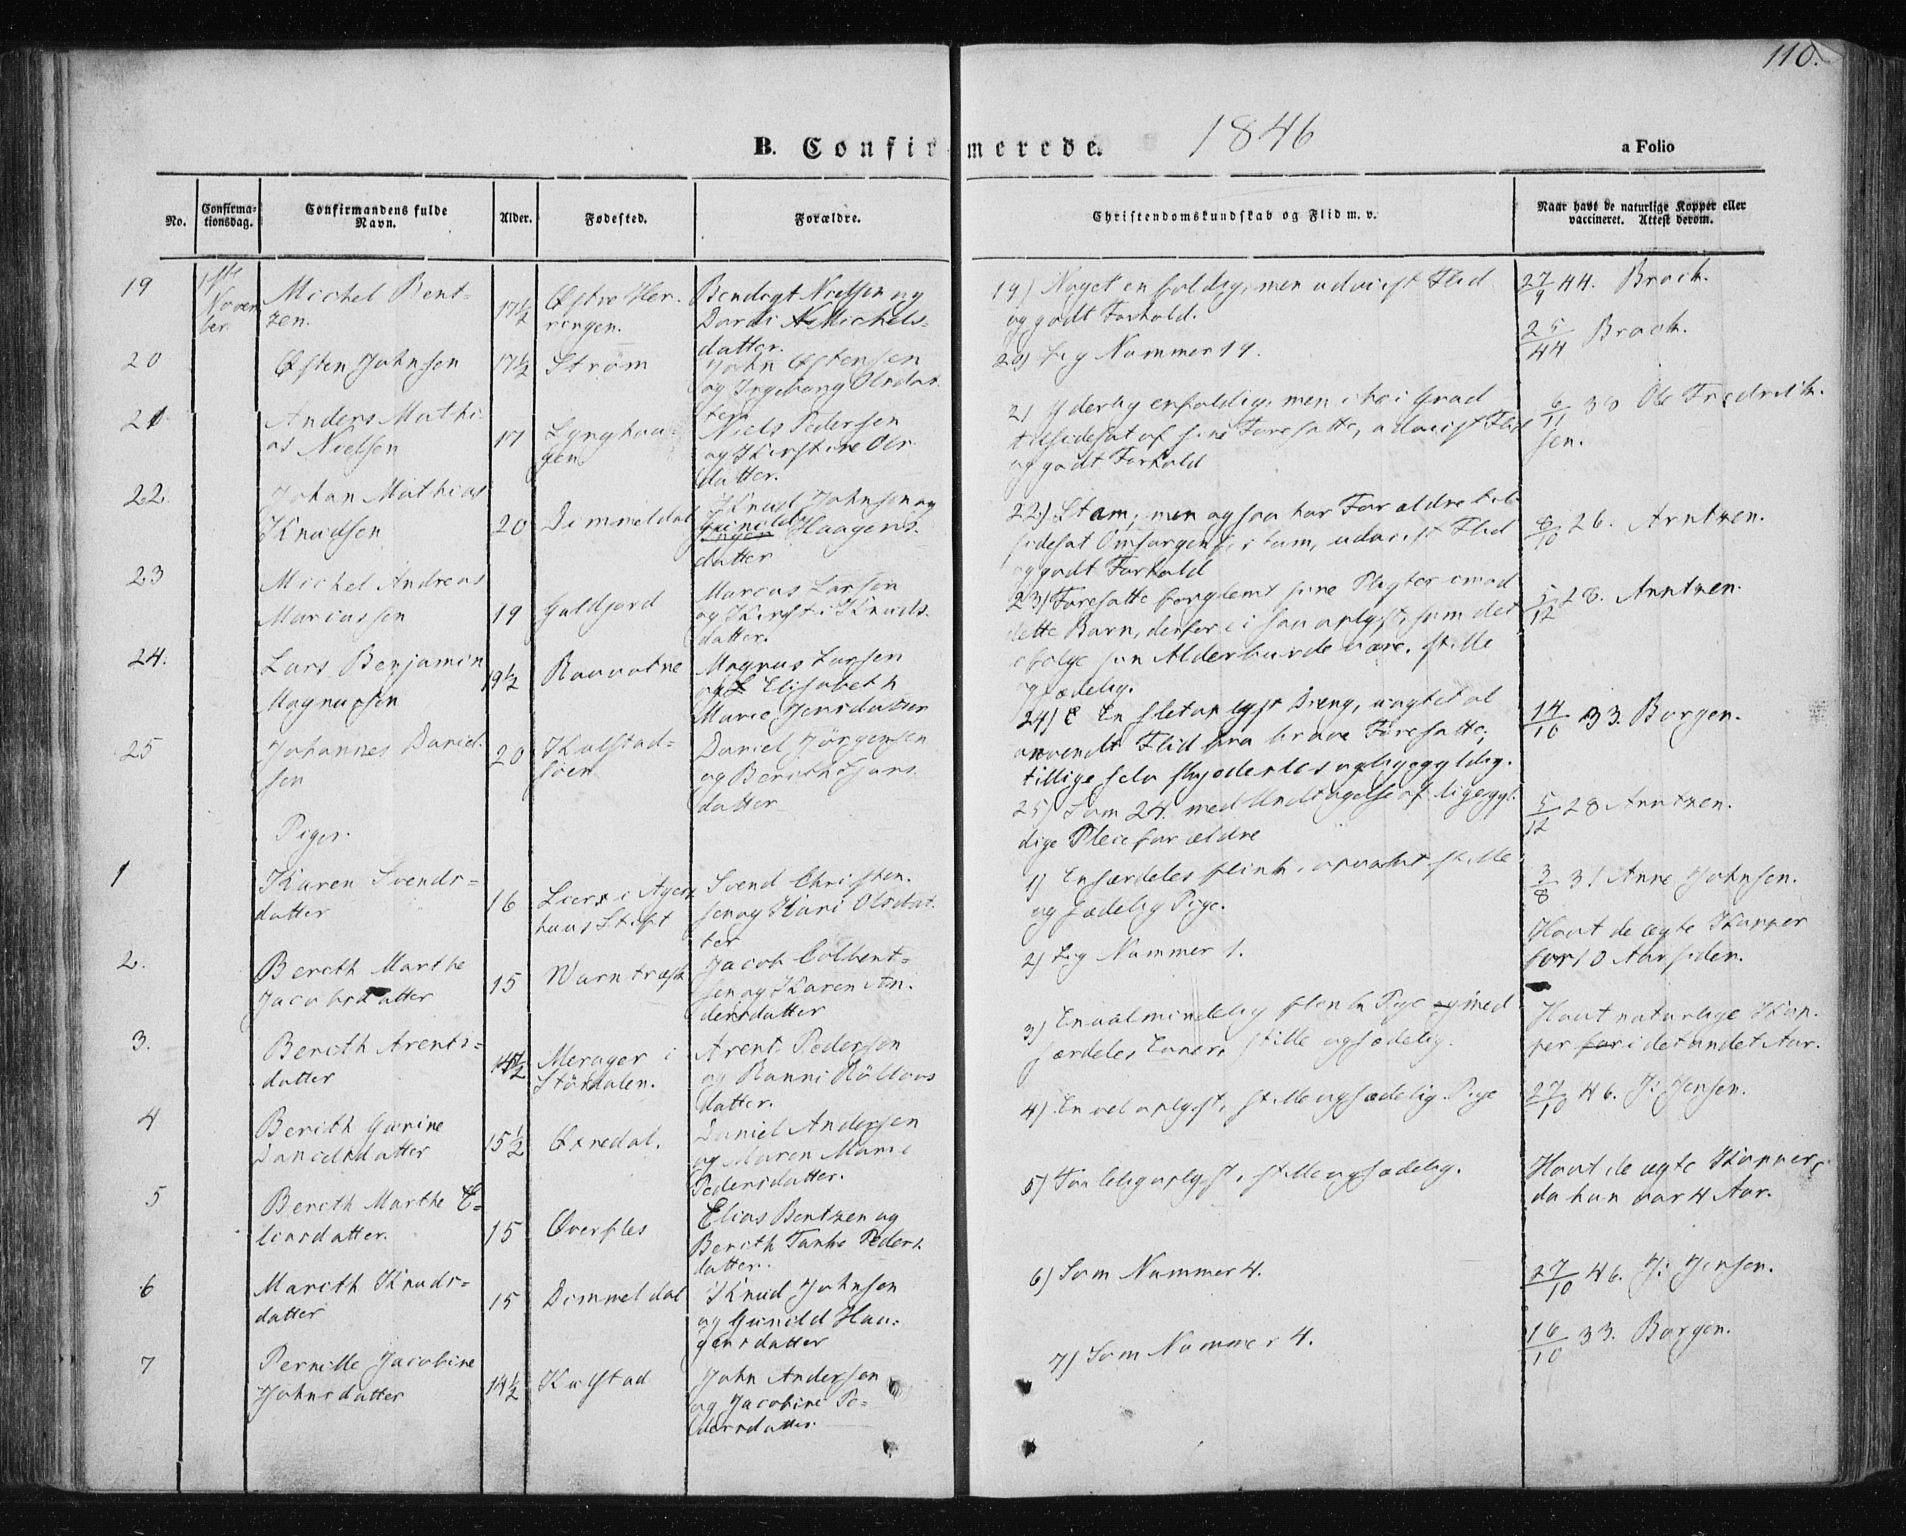 110.
B. Confirmerede. 1846
a Folio
No.
Confirma-
tionsdag.
Confirmandens fulde
Navn.
Alder.
Fødested.
Forældre.
Christendomskundskab og Flid m. v.
Naar havt de naturlige Kopper eller
vaccineret. Attest derom.
19
1ste
Novem
ber.
Michel Bent-
zen.
17½
Østre Her-
ringen.
Bendegt Nielsen og
Dordi Michels-
datter.
19) Noget enfoldig, men udviist Flid
og godt Forhold.
27/9 44. Brock.
20
Østen Johnsen
17½
Strøm
John Østensen
og Ingeborg Olsdat-
ter
20) Lig Nummer 19.
25/44 Brock.
21
Anders Mathi-
as Nielsen
17
Niels Pedersen
og Kirstine Ols-
datter.
21 Yderlig enfoldig, men i høi Grad
tilsidesat af sine Foresatte, udviist Flid
og godt Forhold
6/11 38 Ole Fredrik-
sen.
22.
Johan Mathias
Knudsen
20
Dimmeldal
Knud Johnsen og
Gunild Haagens-
datter
22) Stam, men ogsaa har Forældre til-
sidesat Omsorgen for ham, udviist Flid
og godt Forhold
6/10 26. Arntzen.
23
Michel Andreas
Marcussen
19
Guldjord
Marcus Larsen
og Kirsti Knuds-
datter.
23) Foresatte forglemt sine Pligter imod
dette Barn, derfor ei saa oplyst, som det
ifølge sin Alder burde være, stille
og sædelig.
5/12 28. Arntzen.
24.
Lars Benjamin
Magnussen
19½
Ravvatne
Magnus Larsen
og Elisabeth
Marie Jensdatter
24) En sletoplyst Dreng, uagtet al
anvendt Flid fra brave Foresatte;
tillige selv skjødesløs og ligegyldig.
14/10 33. Borgen.
25
Johannes Daniel-
sen
20
Kulstad-
søen
Daniel Jørgensen
og Berith
datter
25) Som 24. med Undtagelse af ligegyl-
dige Pleieforældre
5/12 28 Arntzen.
Piger.
1
Karen Svends-
datter
16
i Agers-
huus Stift
Svend Christen-
sen og Kari Olsdat-
ter
1) Særdeles flink, opvakt stille
og sædelig Pige.
3/8 31 Anne Johnsen.
2.
Berith Marthe
Jacobsdatter
15
Varntræsk
Jacob Colbent-
sen og Karen An-
dersdatter
2) Lig Nummer 1.
Havt de ægte Kopper
for 10 Aar siden.
3.
Berith Arents-
datter
14½
Merager i
Stördalen.
Arent Pedersen
og Ranni
datter.
3) En almindelig flink Pige med
særdeles Evner, stille og sædelig.
Havt naturlige Kop-
per for i det andet Aar.
4
Berith Garine
Danielsdatter
15½
Øxredal.
Daniel Andersen
og Maren Marie
Pedersdatter.
4) En vel oplyst, stille og sædelig Pige
27/10 46. J: Jensen.
5
Berith Marthe E-
liasdatter.
15
Øverfles
Elias Bentzen og
Berith Tanke Peders-
datter.
5) Taalelig oplyst, stille og sædelig.
Havt de ægte Kopper,
da hun var 4 Aar.
6
Marith Knuds-
datter
15
Dimmeldal
Knud Johnsen
og Gunild Haa-
gensdatter
6) Som Nummer 4.
27/10 46. J: Jensen.
7
Pernille Jacobine
Johnsdatter
14½
Kulstad
John Andersen
og Jacobine Pe-
dersdatter.
7) Som Nummer 4.
16/10 33. Borgen.